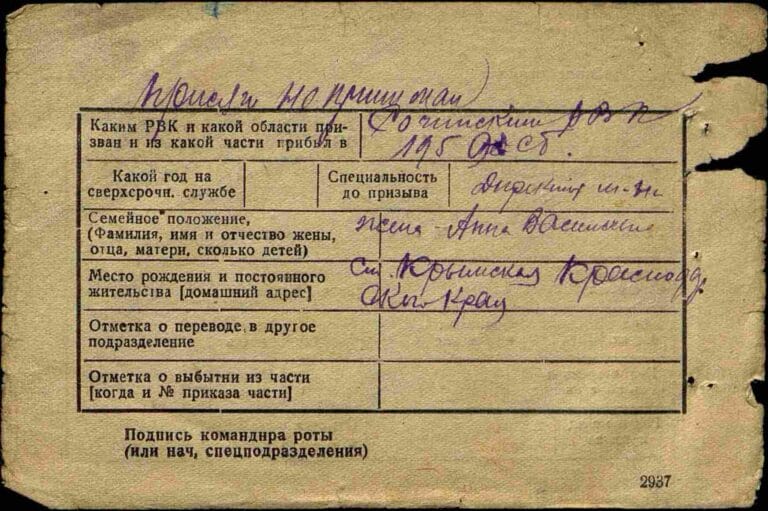 Присяги не принимал
Каким РВК и какой области при-
зван и из какой части прибыл в
Сочинский РВК
195
Какой год на
сверхсрочн. службе
Специальность
до призыва
Семейное положение,
(Фамилия, имя и отчество жены,
отца, матери, сколько детей)
жена - Анна Васильевна
Место рождения и постоянного
жительства [домашний адрес]
ст. Крымская Краснодар
ского Края
Отметка о переводе в другое
подразделение
Отметка о выбытии из части
[когда и № приказа части]
Подпись командира роты
(или нач, спецподразделения)
2937